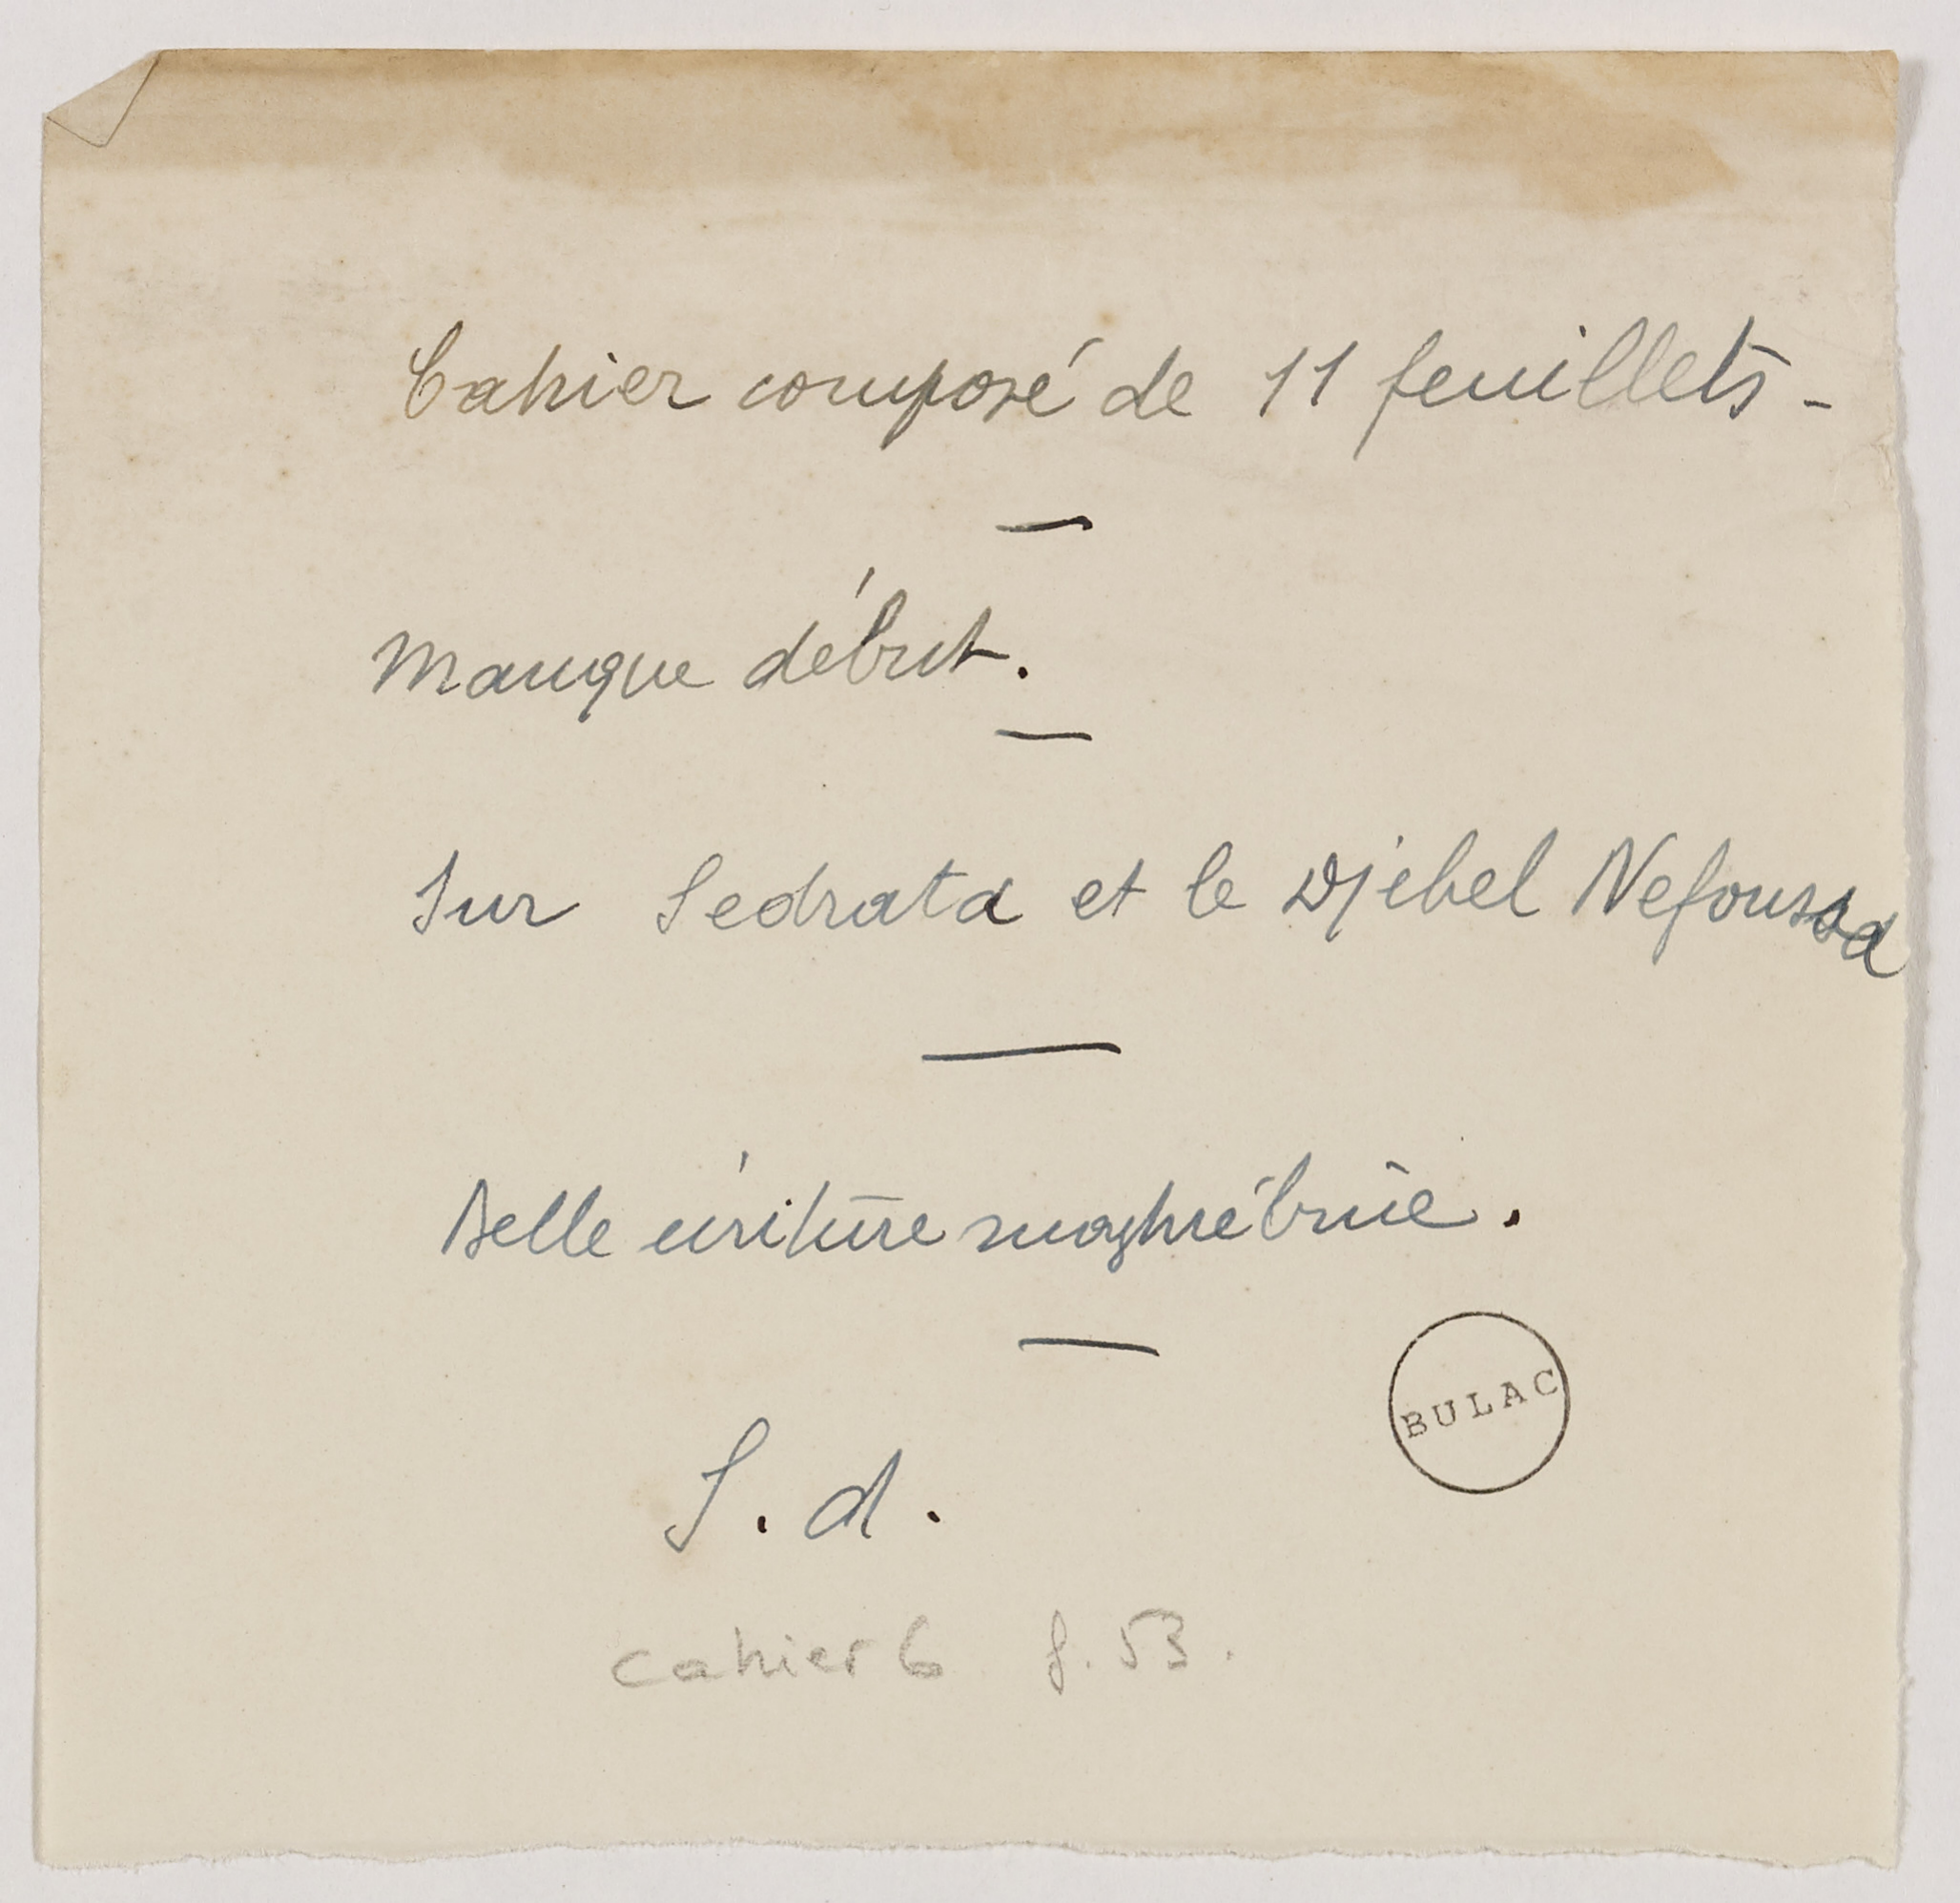 Cahier composé de 11 feuillets -
Manque début.
Sur Sedrata et le Djebel Nefoussa
Belle écriture maghrébine.
BULAC
S. d.
cahier 6 f. 53.